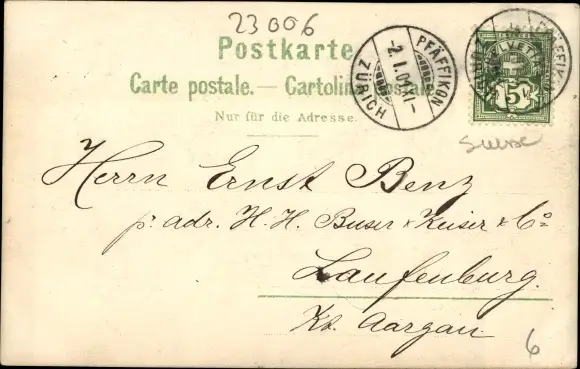 23006
Postkarte
Carte postale. — Cartolina postale
Nur für die Adresse.
PFÄFFIKON
-2.I.01.XI-
ZÜRICH
HELVETIA
5
Suisse
Herrn Ernst Benz
p. adr. H. H. Buser & Keiser & Co
Laufenburg.
Kt. Aargau.
6